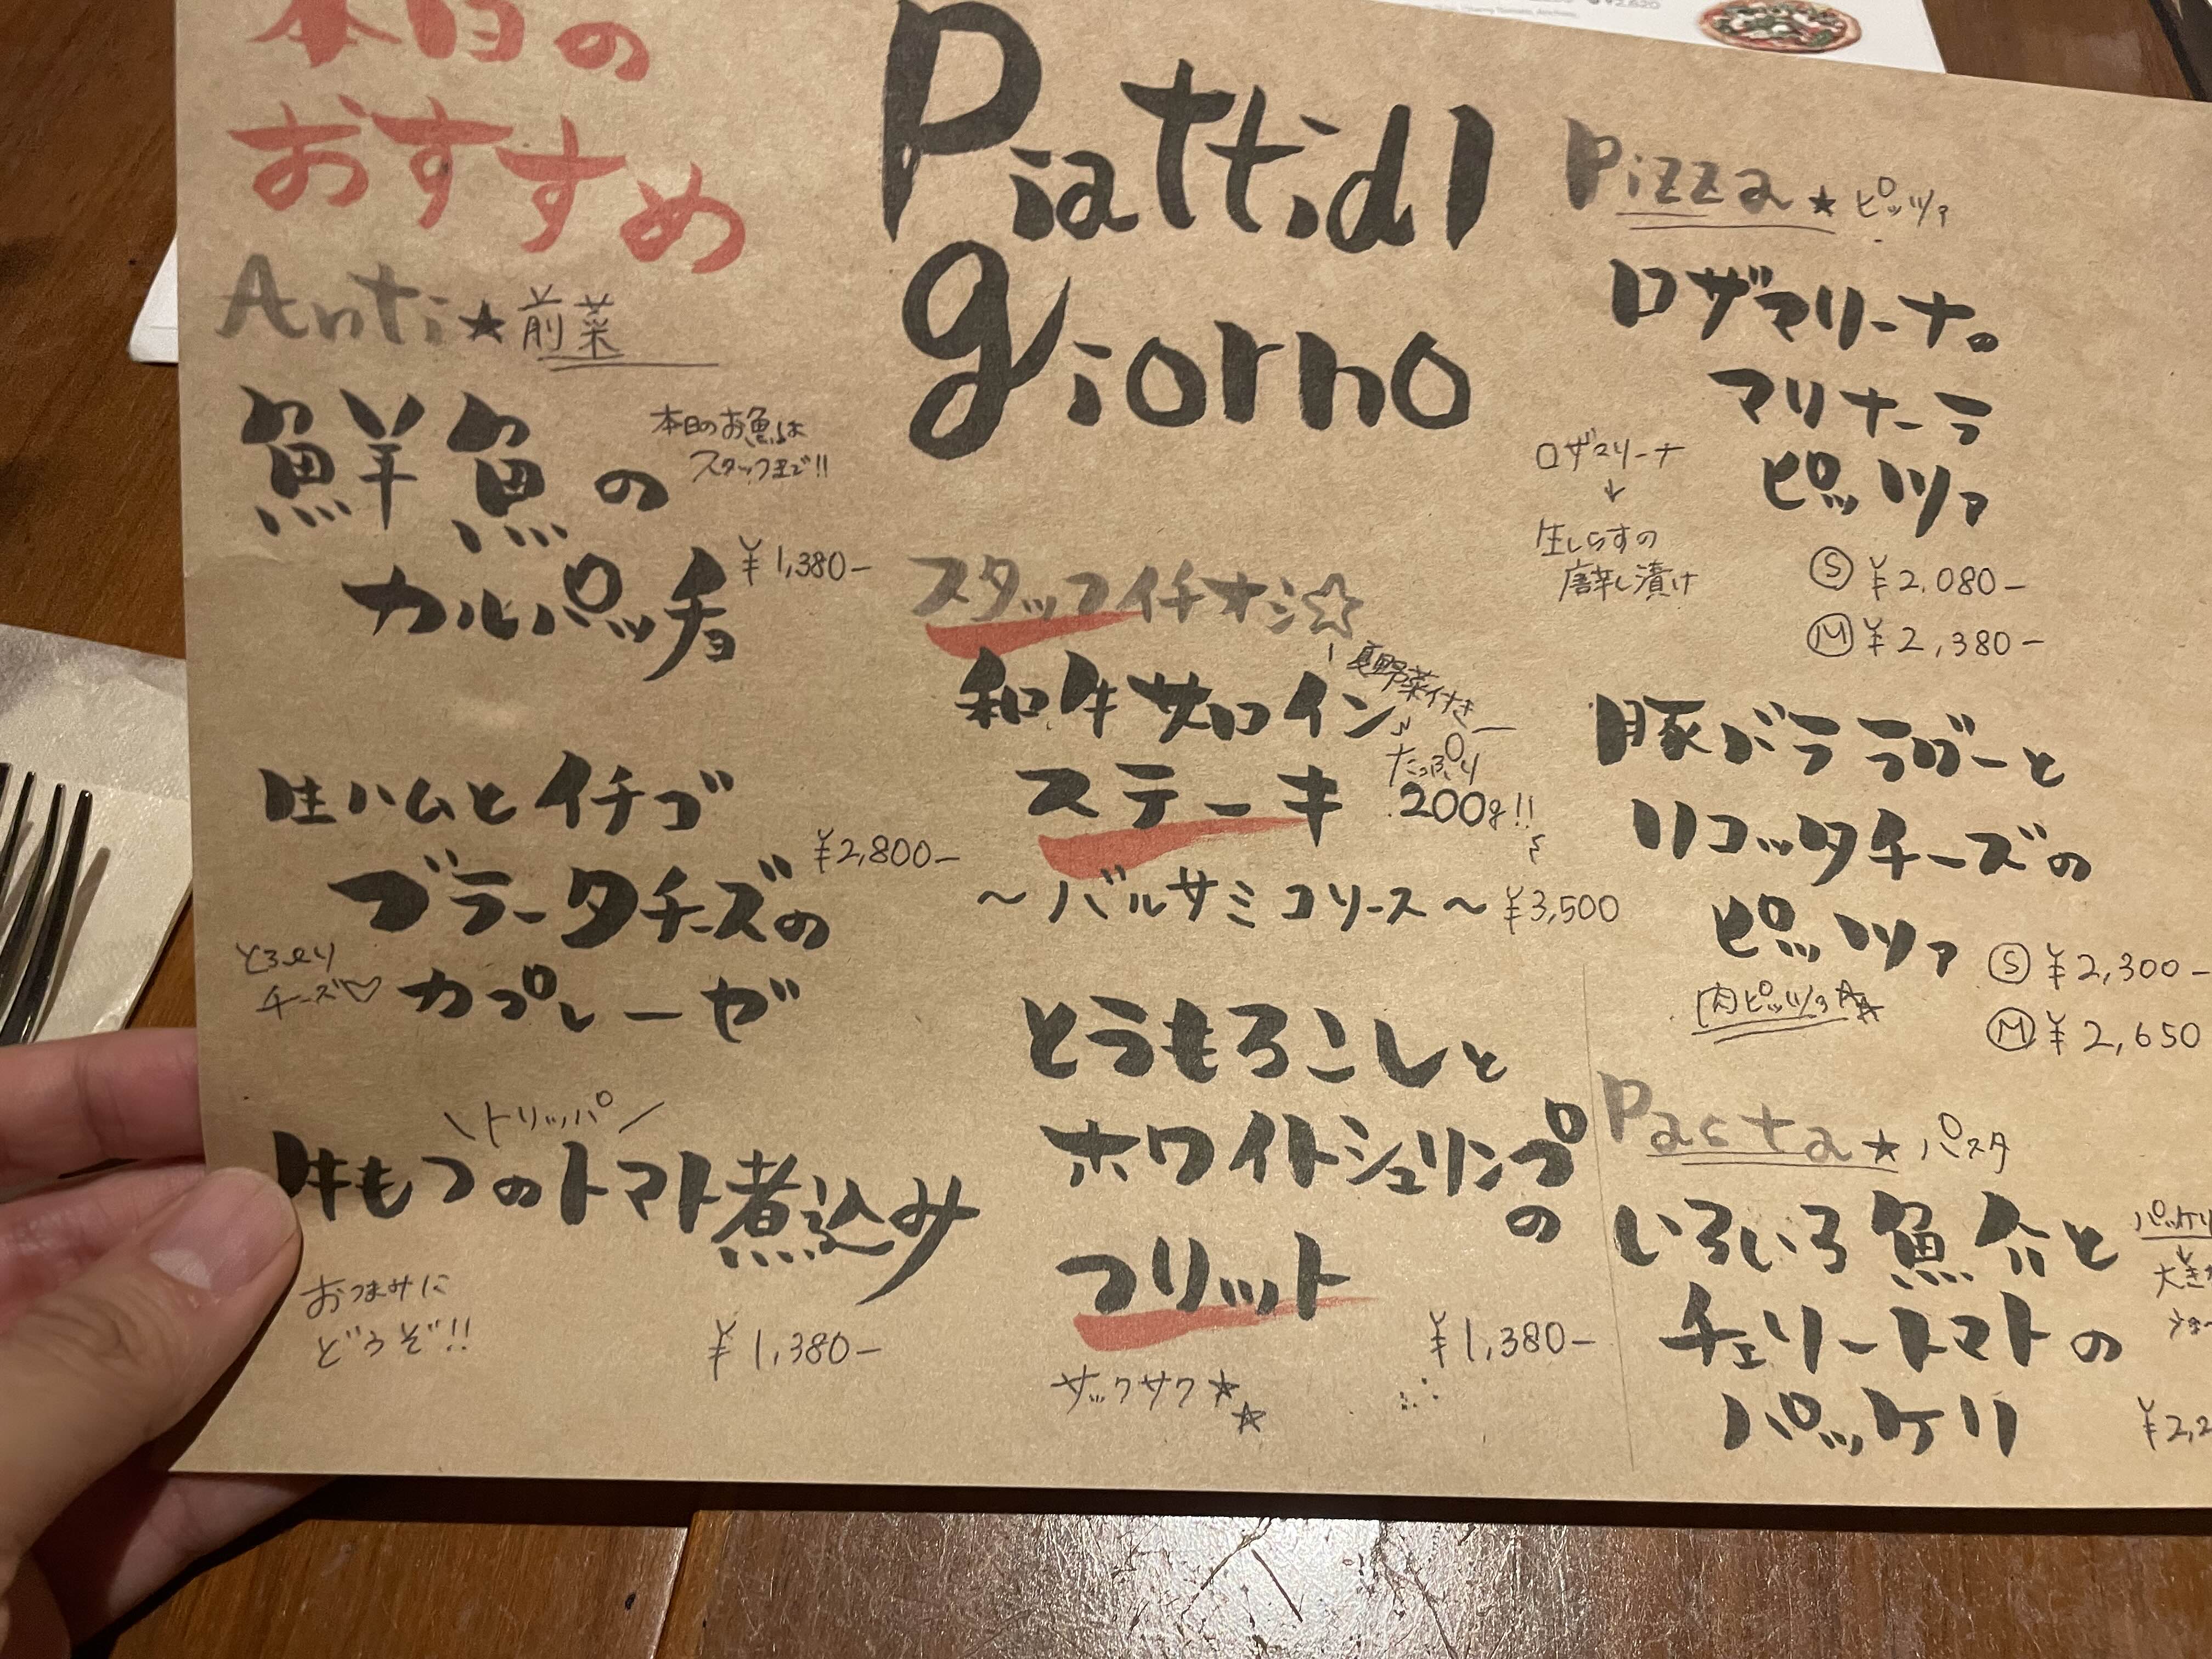 本日の
おすすめ
Piattidi
giorno
Anti★前菜
鮮魚の
本日のお魚は
スタッフまで!!
カルパッチョ
¥1,380-
生ハムとイチゴ
ブラータチーズの
¥2,800-
とろ〜り
チーズ♡
カプレーゼ
\トリッパ/
牛もつのトマト煮込み
おつまみに
どうぞ!!
¥1,380-
スタッフイチオシ☆
和牛サーロイン
夏野菜付き
ステーキ
たっぷり
200g!!
〜バルサミコソース〜 ¥3,500
とうもろこしと
ホワイトシュリンプ
の
フリット
¥1,380-
ザックサク★★
Pizza★ピッツァ
ロザマリーナの
マリナーラ
ピッツァ
ロザマリーナ
↓
生しらすの
唐辛し漬け
Ⓢ ¥2,080-
Ⓜ ¥2,380-
豚バララグーと
リコッタチーズの
ピッツァ
肉ピッツァ★★
Ⓢ ¥2,300-
Ⓜ ¥2,650
Pasta★パスタ
いろいろ魚介と
チェリートマトの
パッケリ
パッケリ
↓
大き
¥2,2